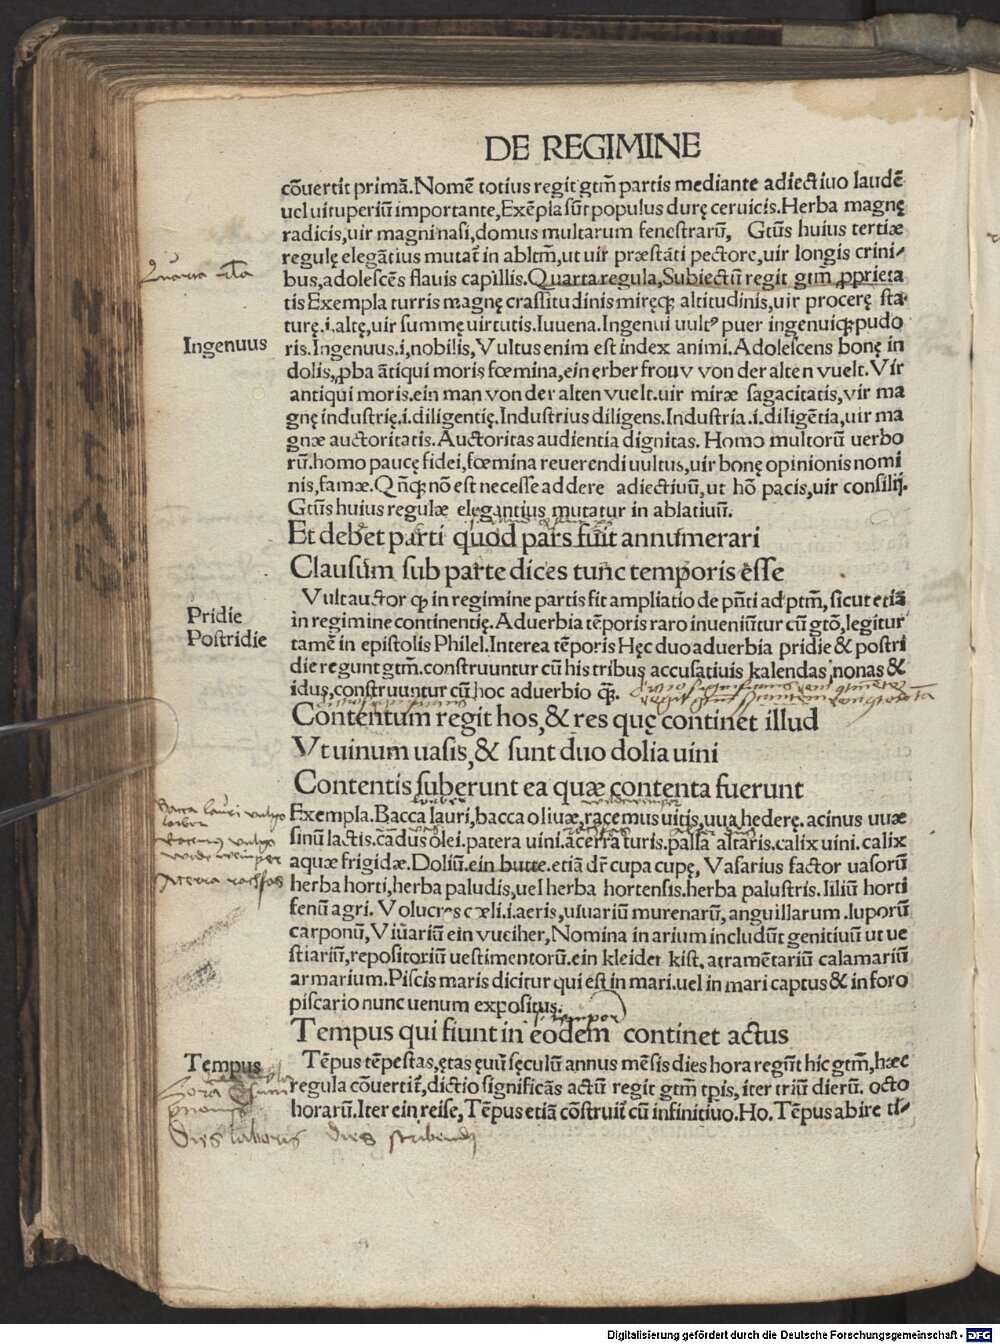 DE REGIMINE
cōuertit primā. Nomē totius regit gtm̄ partis mediante adiectiuo laudē
uel uituperiū importante, Exēpla sūt populus durę ceruicis. Herba magnę
radicis, uir magni nasi, domus multarum fenestrarū, Gtūs huius tertiæ
regulę elegātius mutat᷑ in abltm̄, ut uir præstāti pectore, uir longis crini⸗
bus, adolescēs flauis capillis. Quarta regula, Subiectū regit gtm̄ ꝓprieta
tis Exempla turris magnę crassitudinis miręqꝫ altitudinis, uir procerę sta⸗
turę .i. altę, uir summę uirtutis. Iuuena. Ingenui uultꝰ puer ingenuiqꝫ pudo
Ingenuus
ris. Ingenuus .i. nobilis, Vultus enim est index animi. Adolescens bonę in
dolis, ꝓba ātiqui moris fœmina, ein erber frouv von der alten vuelt. Vir
antiqui moris. ein man von der alten vuelt. uir miræ sagacitatis, vir ma
gnę industrię .i. diligentię. Industrius diligens. Industria .i. diligētia, uir ma
gnæ auctoritatis. Auctoritas audientia dignitas. Homo multorū uerbo
rū. homo paucę fidei, fœmina reuerendi uultus, uir bonę opinionis nomi
nis, famæ. Qñqꝫ nō est necesse addere adiectiuū, ut hō pacis, uir consilij.
Gtūs huius regulæ elegantius mutatur in ablatiuū.
Et debet parti quod pars fuit annumerari
Clausum sub parte dices tunc temporis esse
Vult auctor ꝙ in regimine partis fit ampliatio de pñti ad ptm̄, sicut etiā
Pridie
in regimine continentię. Aduerbia tēporis raro inueniūtur cū gtō, legitur
Postridie
tamē in epistolis Philel. Interea tēporis Hęc duo aduerbia pridie & postri
die regunt gtm̄. construuntur cū his tribus accusatiuis kalendas nonas &
idus, construuntur cū hoc aduerbio q̄ꝫ.
Contentum regit hos, & res quę continet illud
Vt uinum uasis, & sunt duo dolia uini
Contentis suberunt ea quæ contenta fuerunt
Exempla. Bacca lauri, bacca oliuæ, racemus uitis, uua hederę. acinus uuæ
sinū lactis. cadus olei. patera uini. acerra turis. passa altaris. calix uini. calix
aquæ frigidæ. Doliū. ein butte. etiā dr̄ cupa cupę, Vasarius factor uasorū
herba horti, herba paludis, uel herba hortensis. herba palustris. liliū horti
fenū agri. Volucres cæli .i. aeris, uiuariū murenarū, anguillarum. luporū
carponū, Viuariū ein vueiher, Nomina in arium includūt genitiuū ut ue
stiariū, repositoriū uestimentorū. ein kleider kist, atramētariū calamariū
armarium. Piscis maris dicitur qui est in mari. uel in mari captus & in foro
piscario nunc uenum expositus.
Tempus qui fiunt in eodem continet actus
Tempus
Tēpus tēpestas, ętas ęuū sęculū annus mēsis dies hora regūt hic gtm̄, hæc
regula cōuertit᷑, dictio significās actū regit gtm̄ tp̄is, iter triū dierū. octo
horarū. Iter ein reise, Tēpus etiā cōstruit᷑ cū infinitiuo. Ho. Tēpus abire ti⸗
Dies laboris dies scribendi
Digitalisierung gefördert durch die Deutsche Forschungsgemeinschaft - DFG